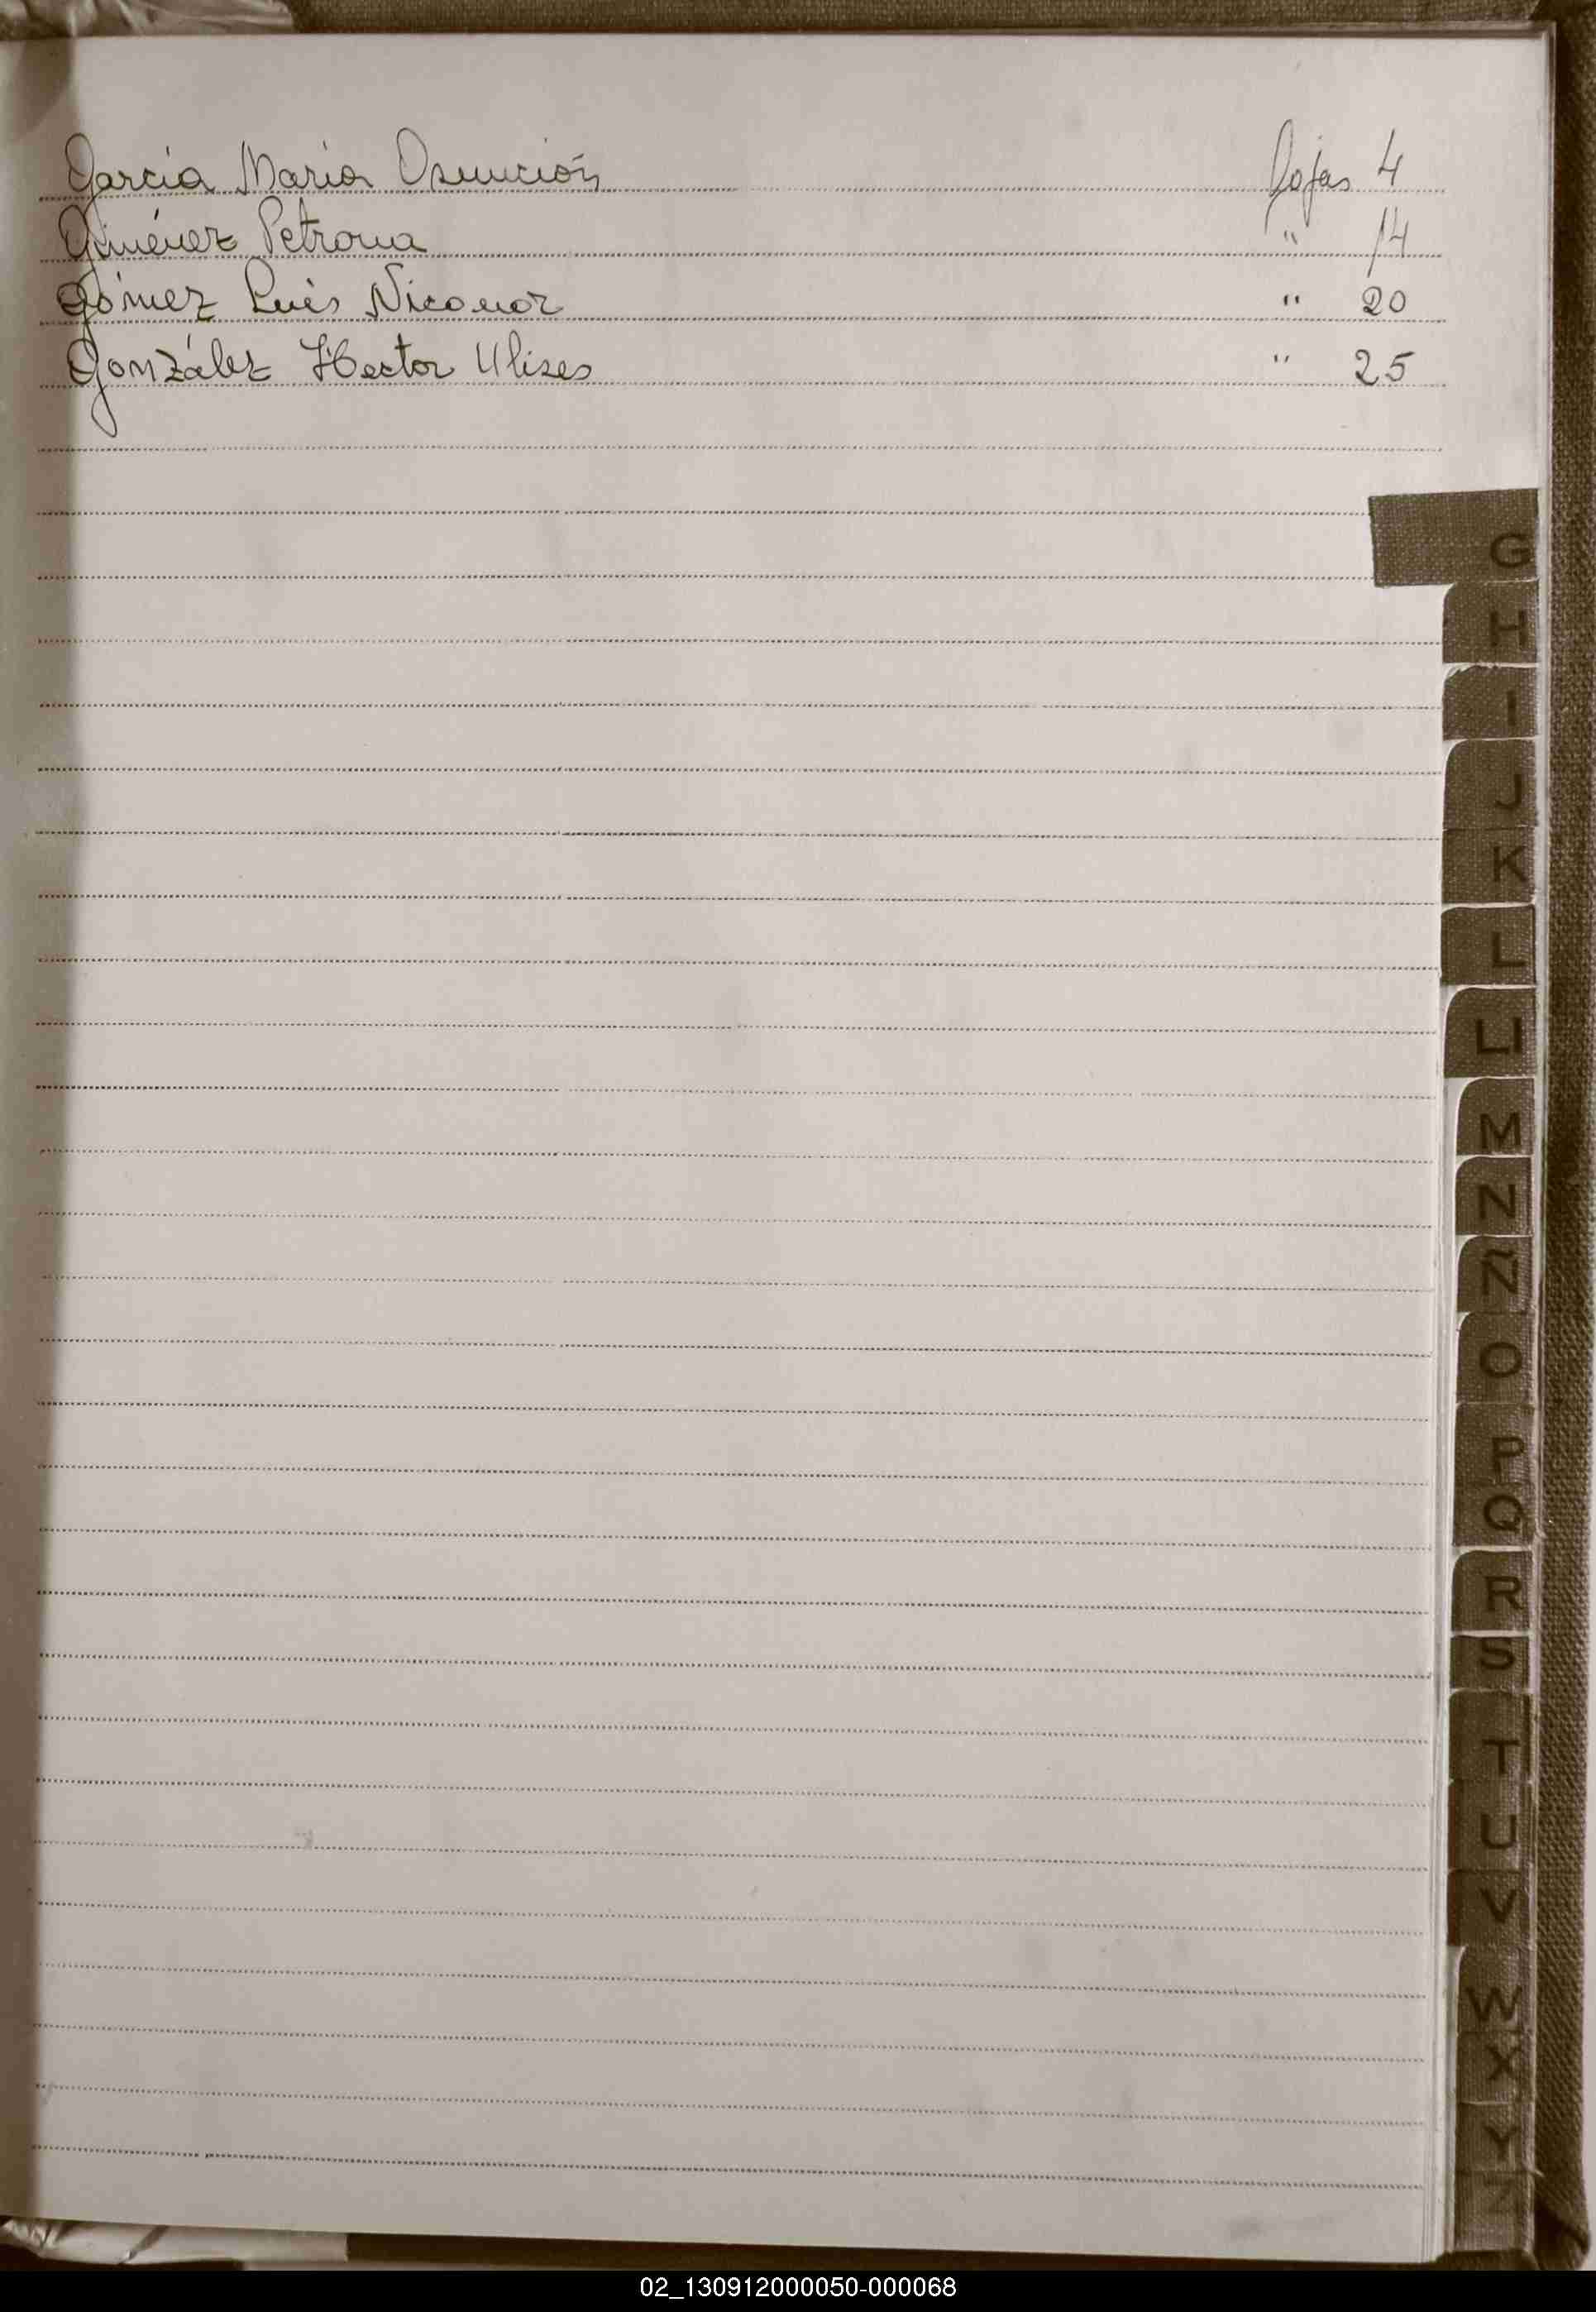 García María Asunción fojas 4
Giménez Petrona " 14
Gómez Luis Nicanor " 20
González Hector Ulises " 25
G
H
I
J
K
L
LL
M
N
Ñ
O
P
Q
R
S
T
U
V
W
X
Y
Z
02_130912000050-000068